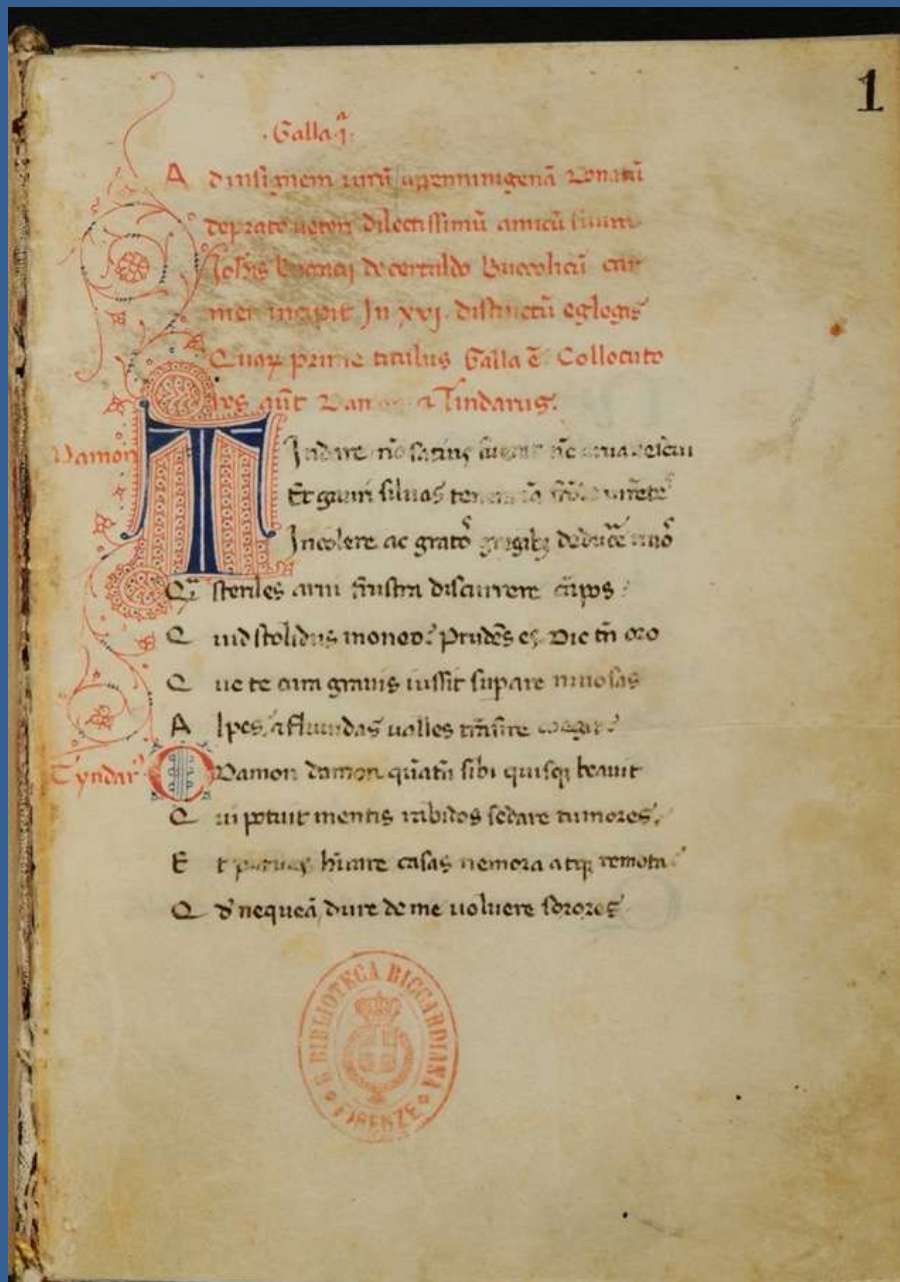 1
·Galla·ꝉ·
A d insignem uirū appenninigenā Donatū
de prato ueteri dilectissimū amicū suum
Joħis boccacij de certaldo Buccolicū car
men incipit In xvj. distinctū eglogis
Quaꝝ prime titulus Galla ē. Collocuto
res aūt Damon ⁊ Tindarus.
Damon
T Jndare nō satius
Et gauri siluas
Jncolere ac grato
Q̄ steriles arui frustra discurrere cāpos
Q uid stolidus moneo? Prudēs es, Dic tn̄ oro
Q ue te cura grauis iussit supare niuosas
A lpes, ⁊ fluuidas ualles trāsire coegit?
Tyndar᾽
O Damon damon quātū sibi quisqꝫ beauit
Q ui potuit mentis rabidos sedare tumores,
E t paruas hītare casas nemora atqꝫ remota
Q d᾽ nequeā, dure de me uoluere sorores
R. BIBLIOTECA RICCARDIANA
FIRENZE